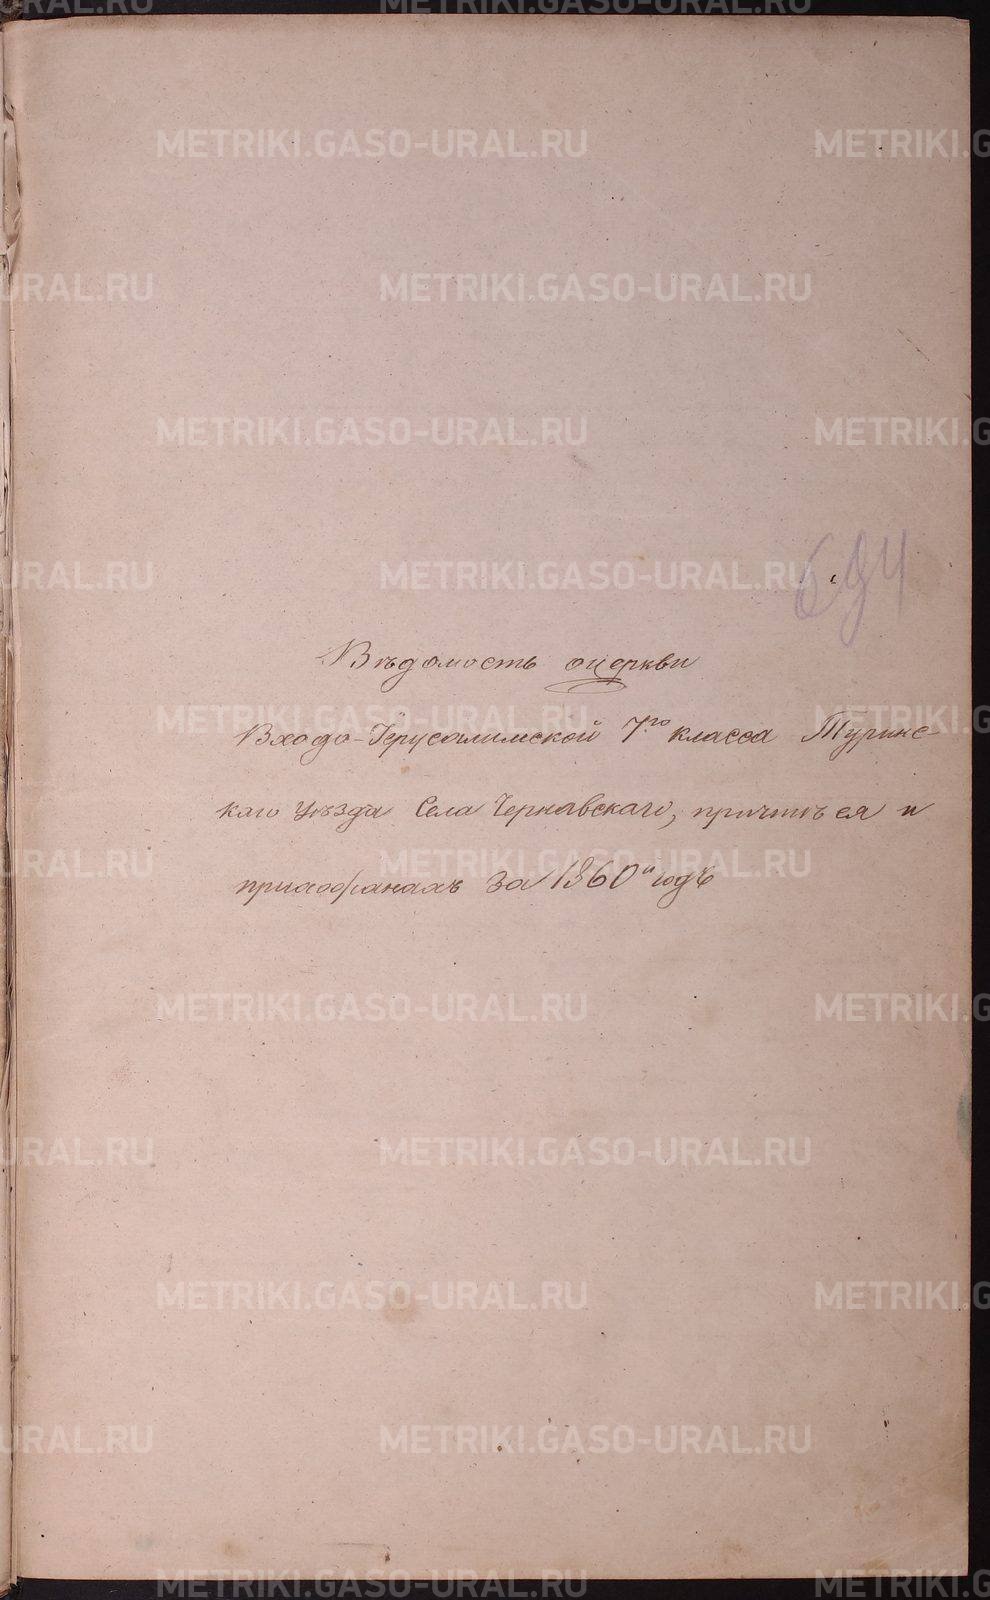 METRIKI.GASO-URAL.RU
694
Вѣдомость о церкви
Входо-Іерусалимской 7го класса Туринс-
каго уѣзда Села Чернавскаго, причтѣ ея и
прихожанахъ за 1860й годъ